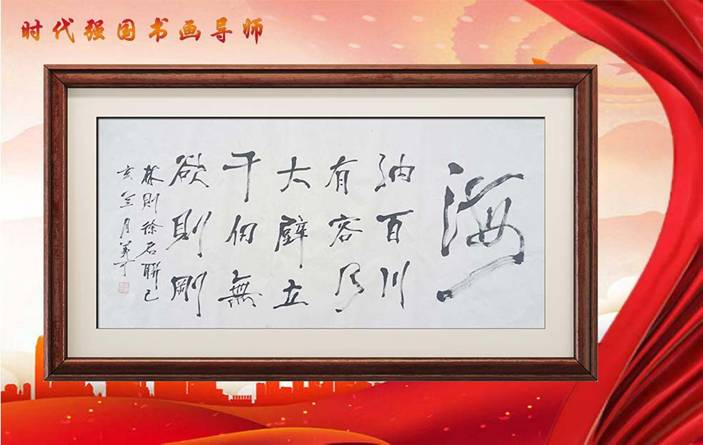 时代强国书画导师
海
納百川
有容乃
大壁立
千仞無
欲則剛
林則徐名聯己
亥 月